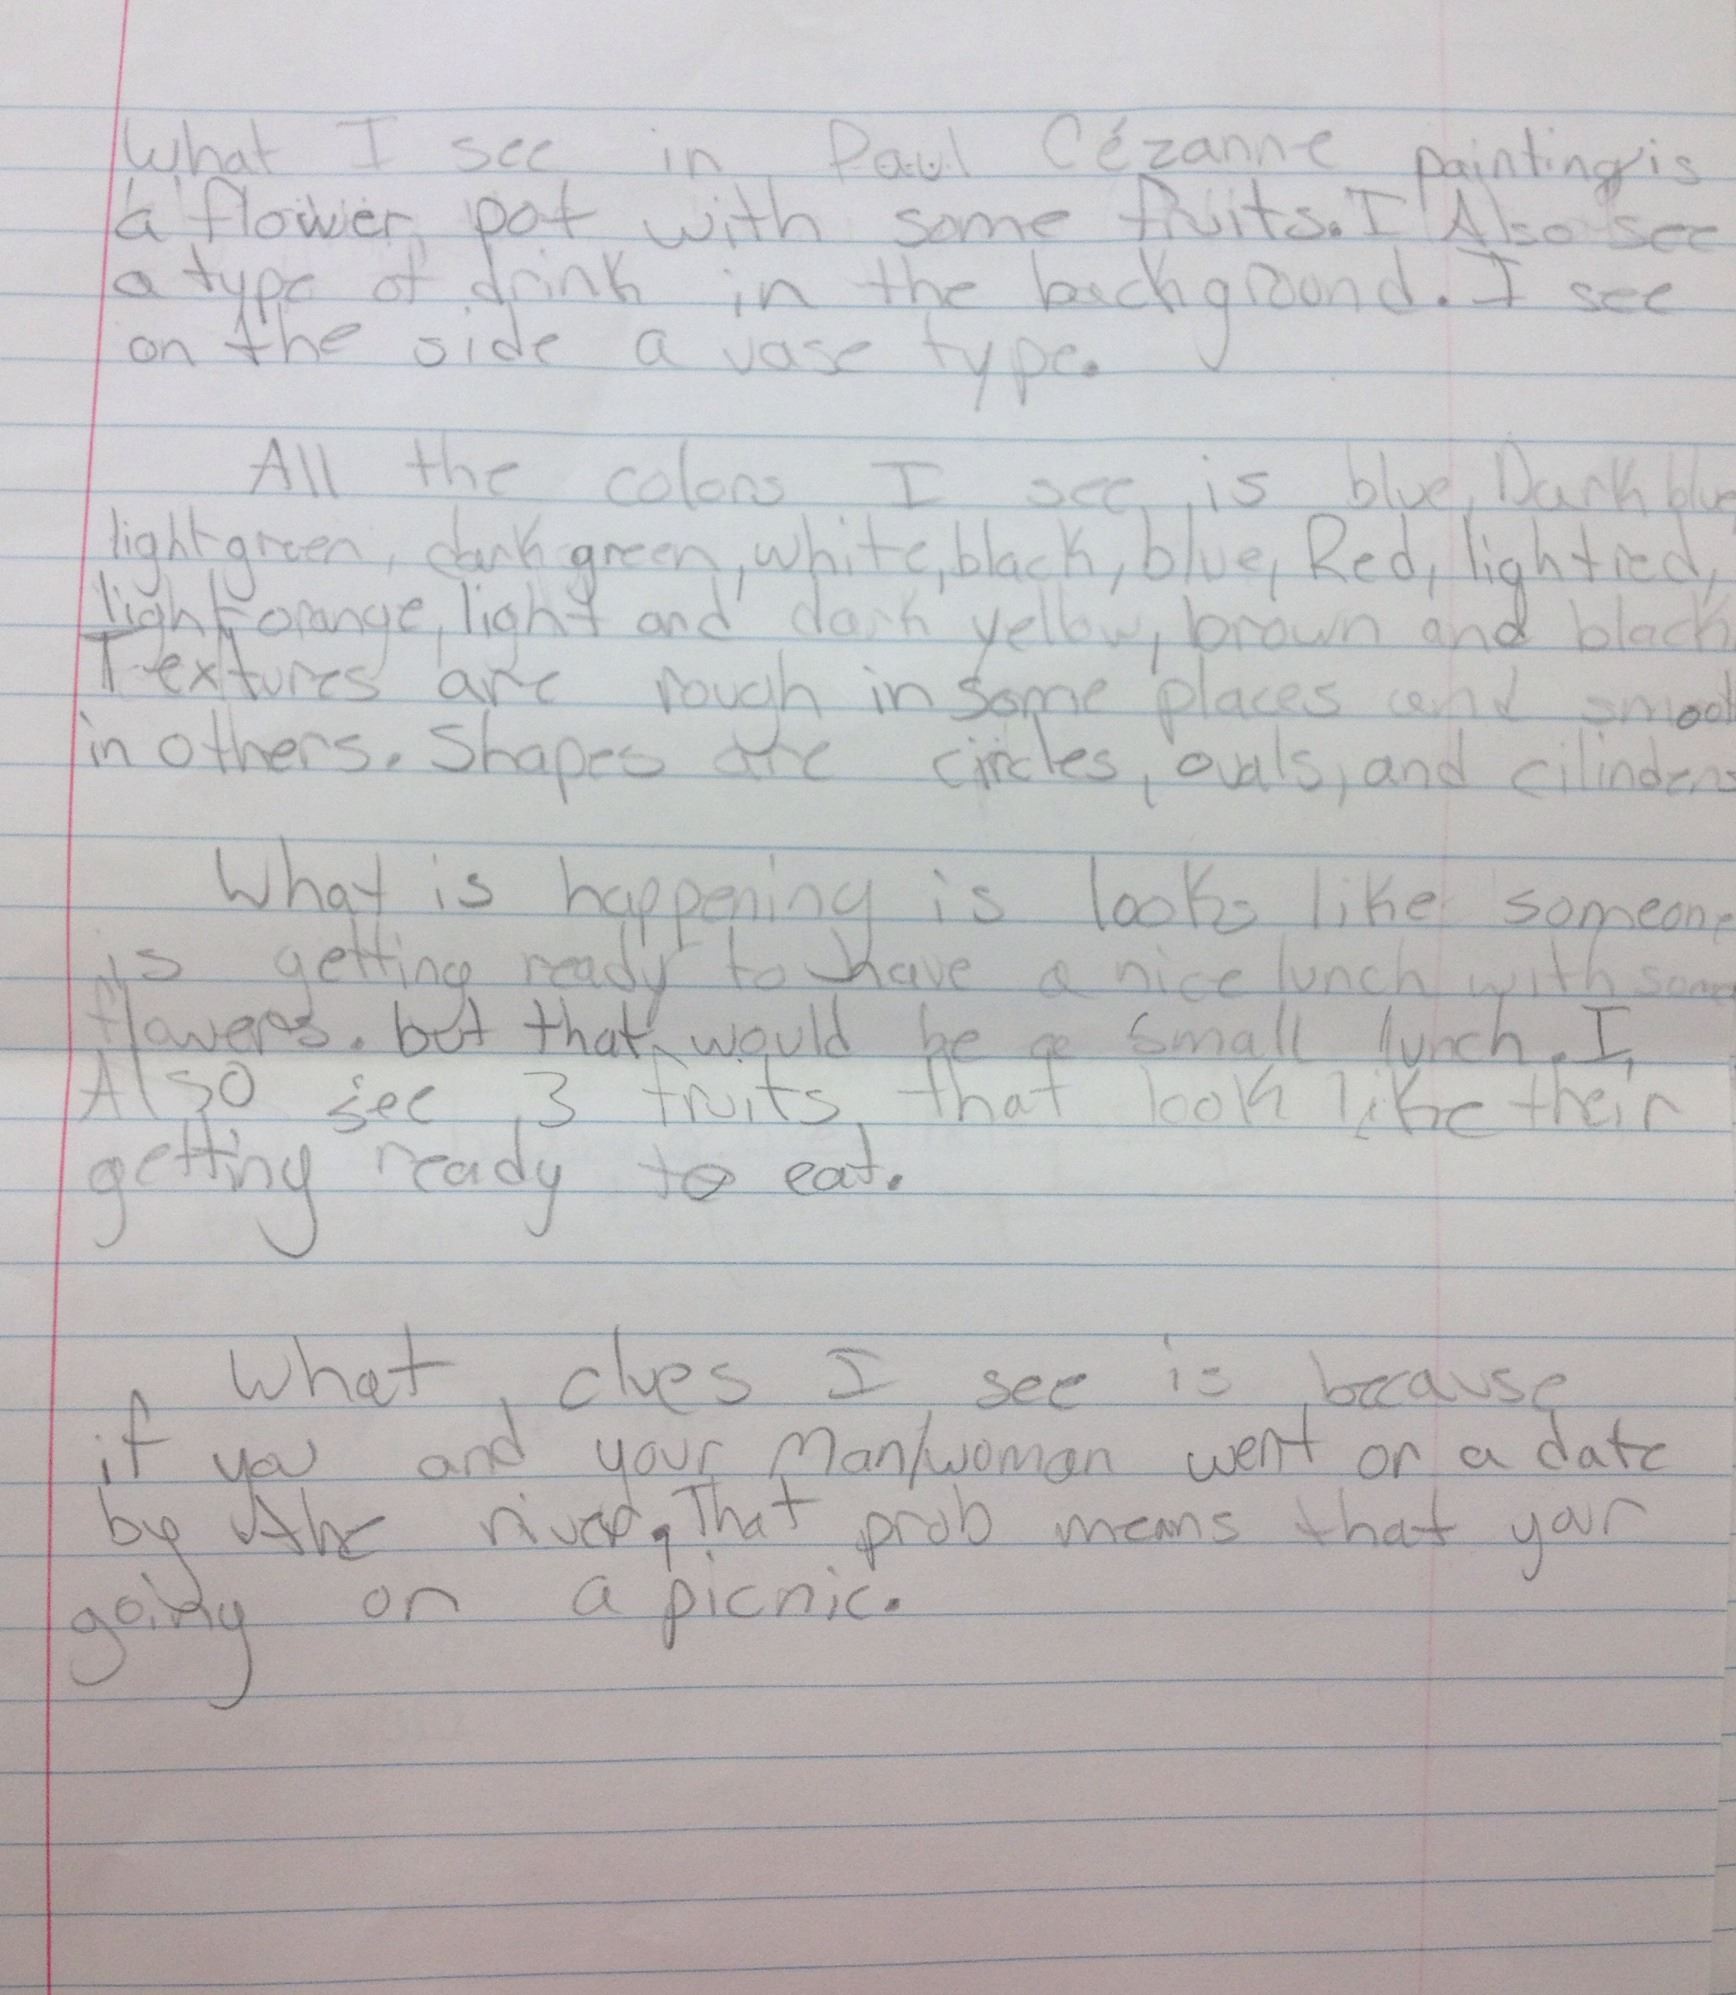 What I see in Paul Cézanne painting is
a flower pot with some fruits. I Also see
a type of drink in the background. I see
on the side a vase type.
All the colors I see is blue, Dark blue
light green, dark green, white, black, blue, Red, light red,
light orange, light and dark yellow, brown and black
Textures are rough in some places and smoot
in others. Shapes are circles, ovals, and cilinders
What is happening is looks like someone
is getting ready to have a nice lunch with some
flowers. but that would be a small lunch. I
Also see 3 fruits that look like their
getting ready to eat.
What clues I see is because
if you and your Man/woman went on a date
by the river. That prob means that your
going on a picnic.